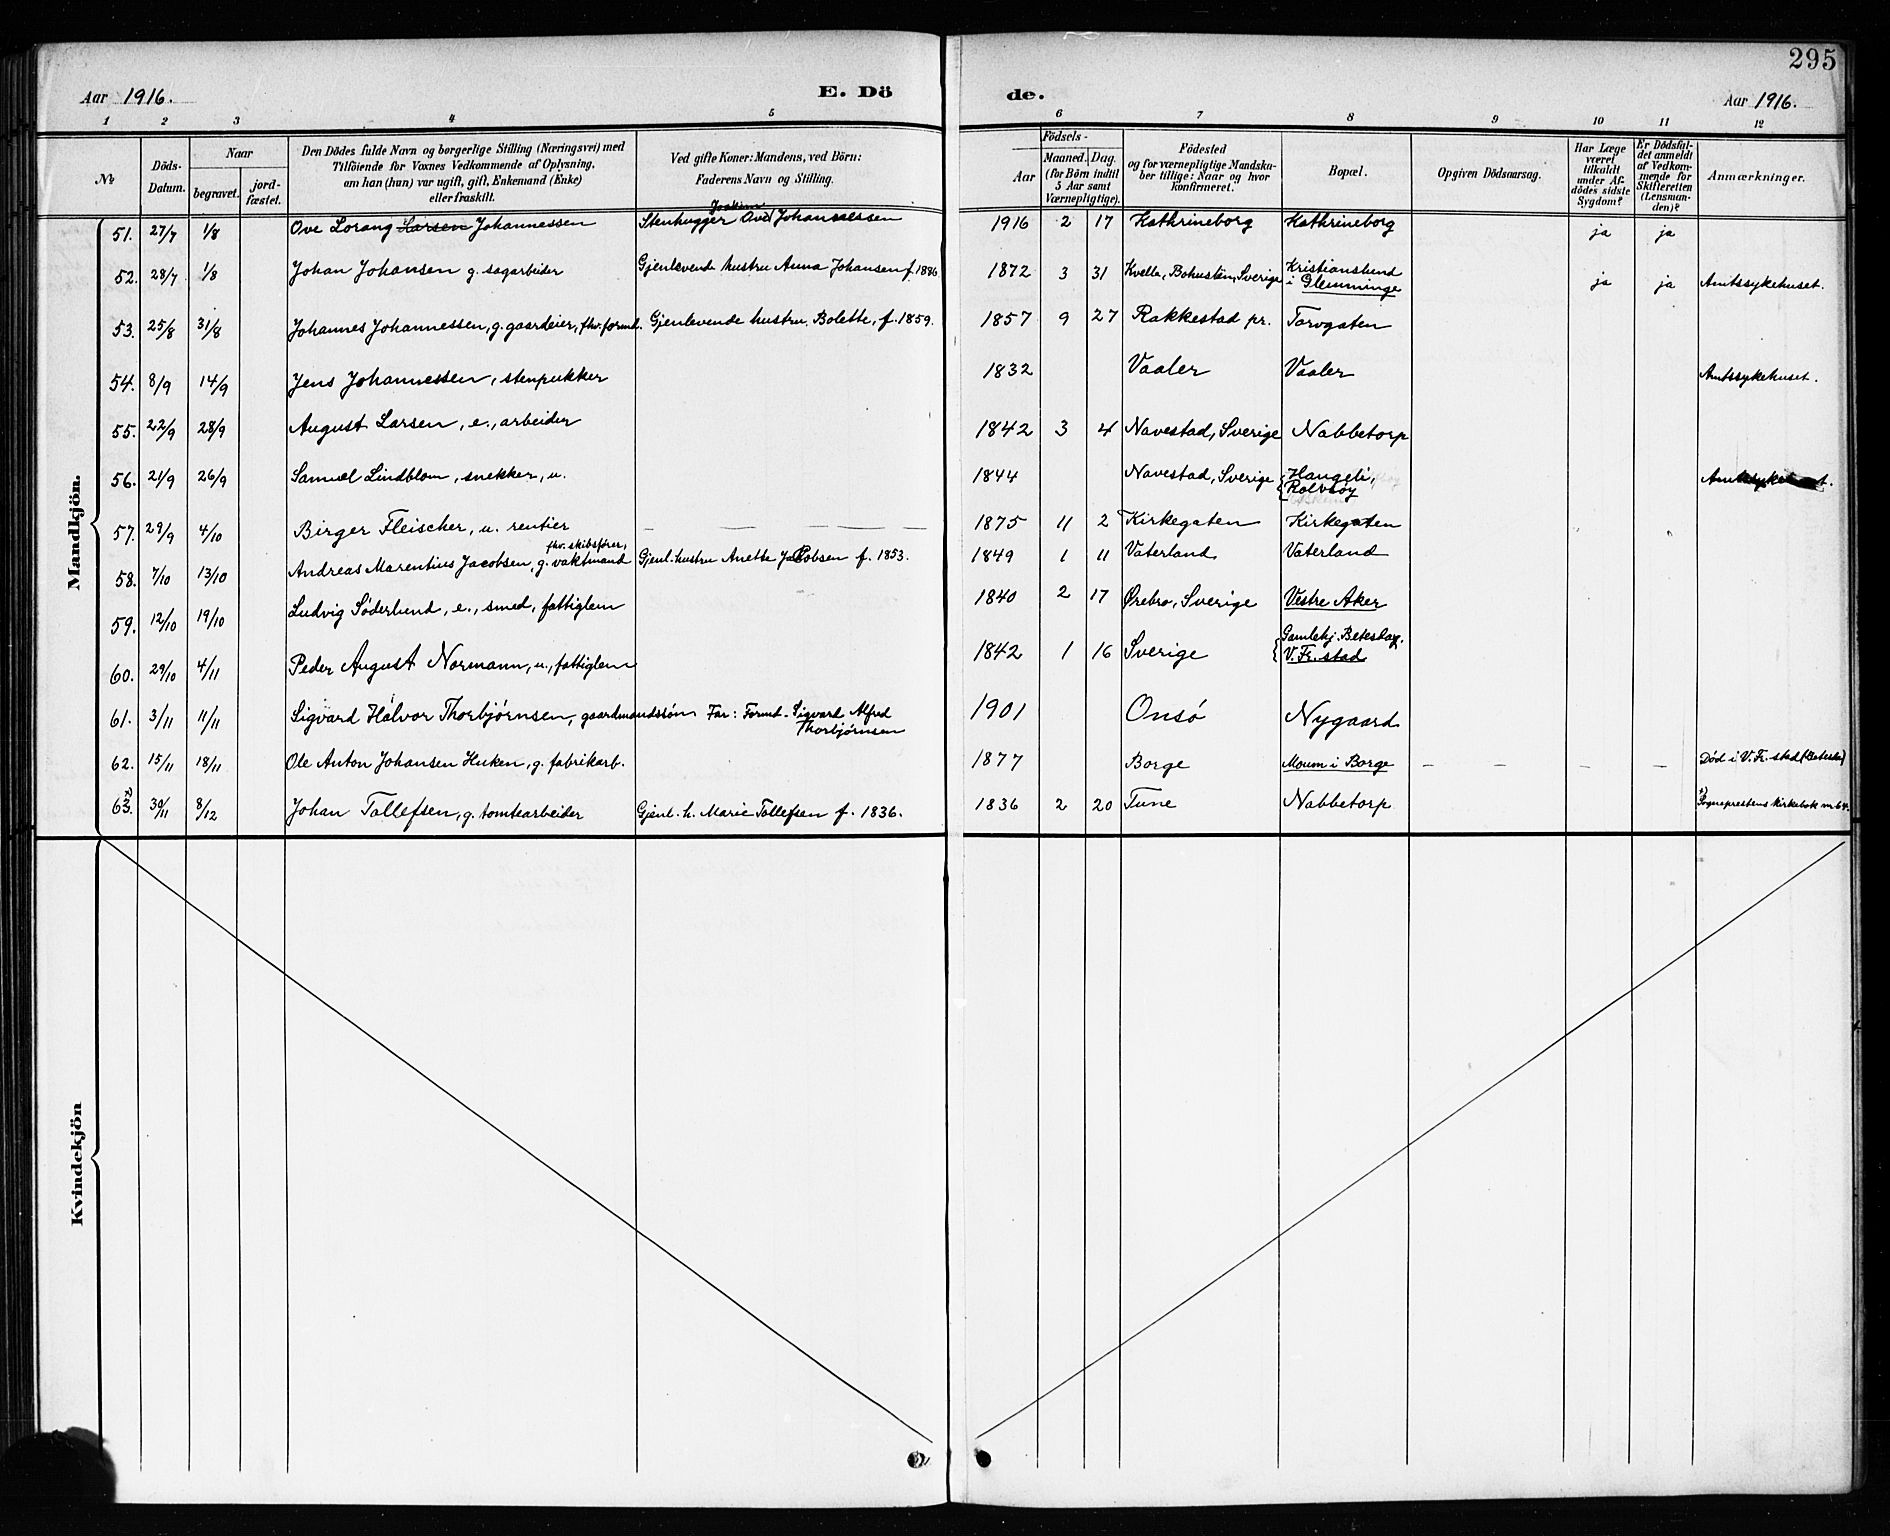 295
Aar 1916. E. Dö de. Aar 1916.
1 2 3 4 5 6 7 8 9 10 11 12
No
Döds-Datum.
Naar
begravet.
jord-fæstet.
Den Dödes fulde Navn og borgerlige Stilling (Næringsvei) med
Tilföiende for Voxnes Vedkommende af Oplysning,
om han (hun) var ugift, gift, Enkemand (Enke)
eller fraskilt.
Ved gifte Koner: Mandens, ved Börn:
Faderens Navn og Stilling.
Födsels-
Aar
Maaned. Dag.
(for Börn indtil
5 Aar samt
Værnepligtige).
Födested
og for værnepligtige Mandska-
ber tillige: Naar og hvor
Konfirmeret.
Bopæl.
Opgiven Dödsaarsag.
Har Læge
været
tilkaldt
under Af-
dödes sidste
Sygdom?
Er Dödsfal-
det anmeldt
af Vedkom-
mende for
Skifteretten
(Lensman-
den)?
Anmærkninger.
Mandkjön.
51. 27/7 1/8 Ove Lorang Larsen Johannessen Stenhugger Joakim Ove Johannessen 1916 2 17 Kathrineborg Kathrineborg ja ja
52. 28/7 1/8 Johan Johansen g. sagarbeider Gjenlevende hustru Anna Johansen f. 1886 1872 3 31 Kvelle, Bohuslen, Sverige Kristianslund i Glemminge ja ja Amtssykehuset.
53. 25/8 31/8 Johannes Johannessen, g. gaardeier, fhv. formd. Gjenlevende hustru Bolette, f. 1859. 1857 9 27 Rakkestad pr. Torvgaten
54. 8/9 14/9 Jens Johannessen, stenpukker 1832 Vaaler Vaaler Amtssykehuset.
55. 22/9 28/9 August Larsen, e., arbeider 1842 3 4 Navestad, Sverige Nabbetorp
56. 21/9 26/9 Samuel Lindblom, snekker, u. 1844 Navestad, Sverige Haugeli, Rolvsøy Amtssykehuset.
57. 29/9 4/10 Birger Fleischer, u. rentier — — — — 1875 11 2 Kirkegaten Kirkegaten
58. 7/10 13/10 Andreas Marentius Jacobsen, fhv. skibsfører, g. vaktmand Gjenl. hustru Anette Jacobsen f. 1853. 1849 1 11 Vaterland Vaterland
59. 12/10 19/10 Ludvig Söderlund, e., smed, fattiglem 1840 2 17 Ørebro, Sverige Vestre Aker
60. 29/10 4/11 Peder August Normann, u., fattiglem 1842 1 16 Sverige Gamlehj. Betesda, V. Fr.stad
61. 3/11 11/11 Sigvard Halvor Thorbjørnsen, gaardmandssøn Far: Formd. Sigvard Alfred Thorbjørnsen 1901 Onsø Nygaard
62. 15/11 18/11 Ole Anton Johansen Huken, g. fabrikarb. 1877 Borge Moum i Borge — — — — Død i V. Fr.stad (Betesda)
63. x) 30/11 8/12 Johan Tollefsen, g. tomtearbeider Gjenl. h. Marie Tollefsen f. 1836. 1836 2 20 Tune Nabbetorp x) Sogneprestens kirkebok nr 64.
Kvindekjön